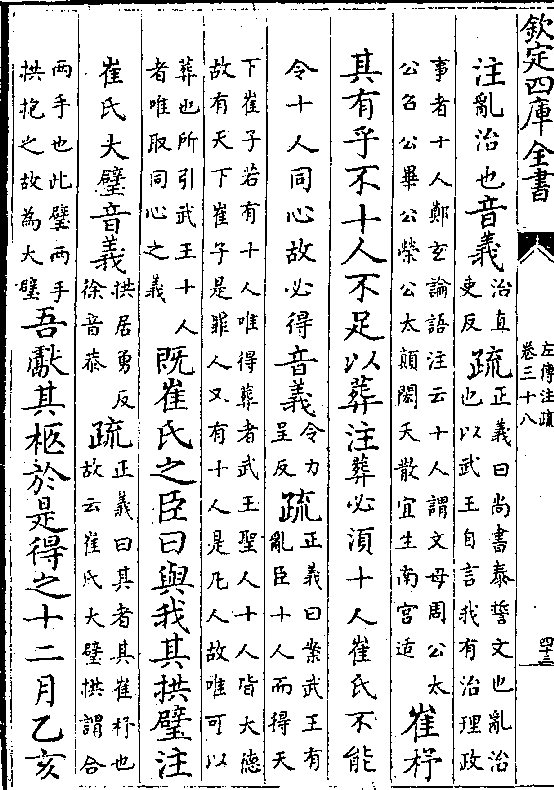 欽定四庫全書
左傳注疏
卷三十八
四十三
注亂治也音義治直吏反疏正義曰尚書泰誓文也亂治也以武王自言我有治理政
事者十人鄭玄論語注云十人謂文母周公太公召公畢公榮公太顛閎夭散宜生南宮适崔杼
其有乎不十人不足以葬注葬必須十人崔氏不能
令十人同心故必得音義令力呈反疏正義曰案武王有亂臣十人而得天
下崔子若有十人唯得葬者武王聖人十人皆大德故有天下崔子是罪人又有十人是凡人故唯可以
葬也所引武王十人者唯取同心之義既崔氏之臣曰與我其拱璧注
崔氏大璧音義拱居勇反徐音恭疏正義曰其者其崔杼也故云崔氏大璧拱謂合
兩手也此璧兩手拱抱之故為大璧吾獻其柩於是得之十二月乙亥